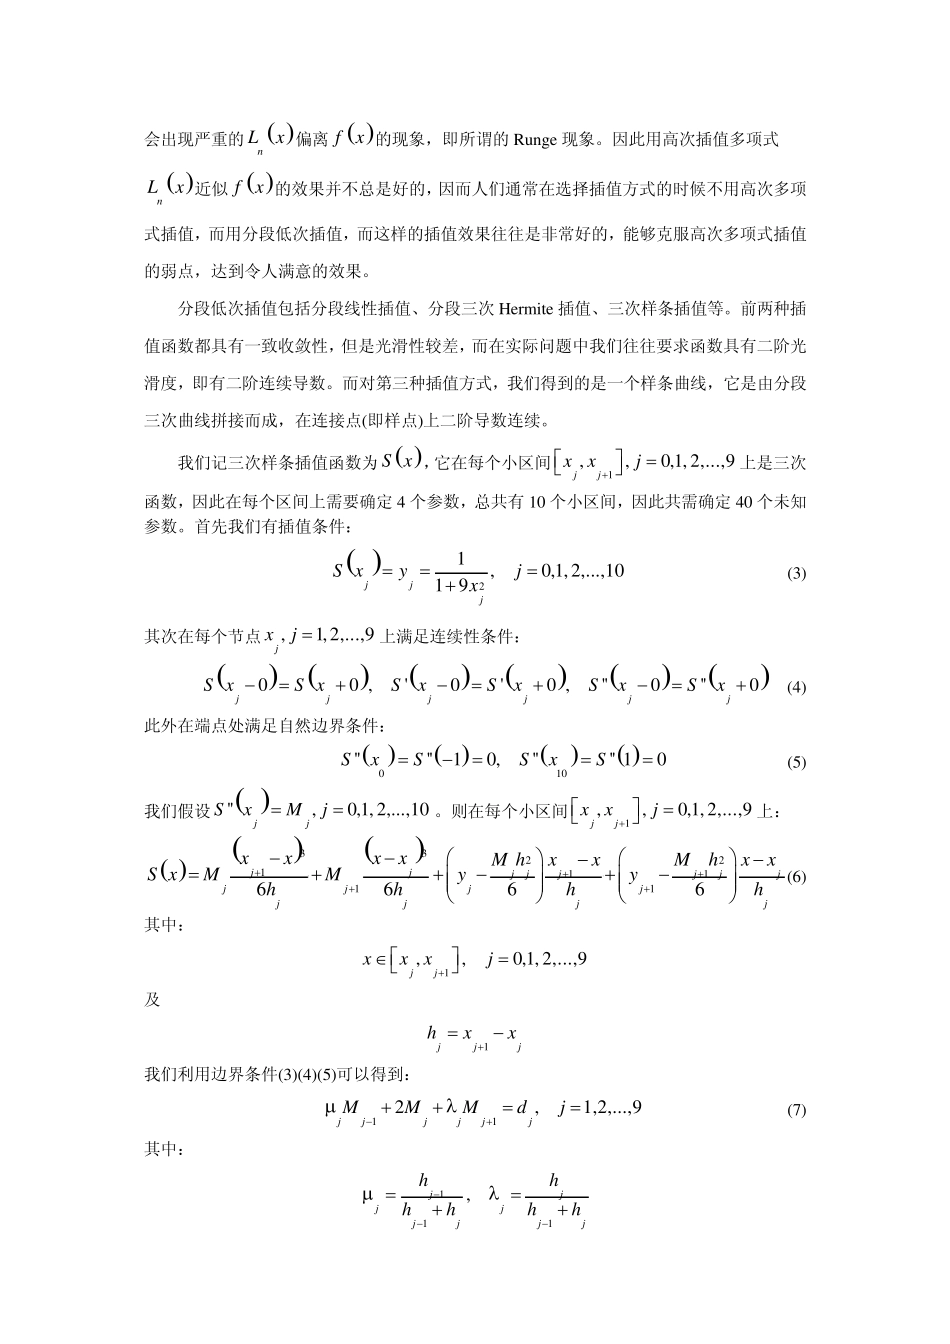 会出现严重的 L_n(x) 偏离 f(x) 的现象，即所谓的 Runge 现象。因此用高次插值多项式
L_n(x) 近似 f(x) 的效果并不总是好的，因而人们通常在选择插值方式的时候不用高次多项
式插值，而用分段低次插值，而这样的插值效果往往是非常好的，能够克服高次多项式插值
的弱点，达到令人满意的效果。
分段低次插值包括分段线性插值、分段三次 Hermite 插值、三次样条插值等。前两种插
值函数都具有一致收敛性，但是光滑性较差，而在实际问题中我们往往要求函数具有二阶光
滑度，即有二阶连续导数。而对第三种插值方式，我们得到的是一个样条曲线，它是由分段
三次曲线拼接而成，在连接点(即样点)上二阶导数连续。
我们记三次样条插值函数为 S(x)，它在每个小区间 [x_j, x_{j+1}], j = 0,1,2,...,9 上是三次
函数，因此在每个区间上需要确定 4 个参数，总共有 10 个小区间，因此共需确定 40 个未知
参数。首先我们有插值条件：
S(x_j) = y_j = \frac{1}{1+9x_j^2}, j = 0,1,2,...,10 (3)
其次在每个节点 x_j, j = 1,2,...,9 上满足连续性条件：
S(x_j − 0) = S(x_j + 0), S'(x_j − 0) = S'(x_j + 0), S''(x_j − 0) = S''(x_j + 0) (4)
此外在端点处满足自然边界条件：
S''(x_0) = S''(−1) = 0, S''(x_{10}) = S''(1) = 0 (5)
我们假设 S''(x_j) = M_j, j = 0,1,2,...,10 。则在每个小区间 [x_j, x_{j+1}], j = 0,1,2,...,9 上：
S(x) = M_j \frac{(x_{j+1} − x)^3}{6h_j} + M_{j+1} \frac{(x − x_j)^3}{6h_j} + (y_j − \frac{M_j h_j^2}{6}) \frac{x_{j+1} − x}{h_j} + (y_{j+1} − \frac{M_{j+1} h_j^2}{6}) \frac{x − x_j}{h_j} (6)
其中：
x ∈ [x_j, x_{j+1}], j = 0,1,2,...,9
及
h_j = x_{j+1} − x_j
我们利用边界条件(3)(4)(5)可以得到：
μ_j M_{j−1} + 2M_j + λ_j M_{j+1} = d_j, j = 1,2,...,9 (7)
其中：
μ_j = \frac{h_{j−1}}{h_{j−1} + h_j}, λ_j = \frac{h_j}{h_{j−1} + h_j}